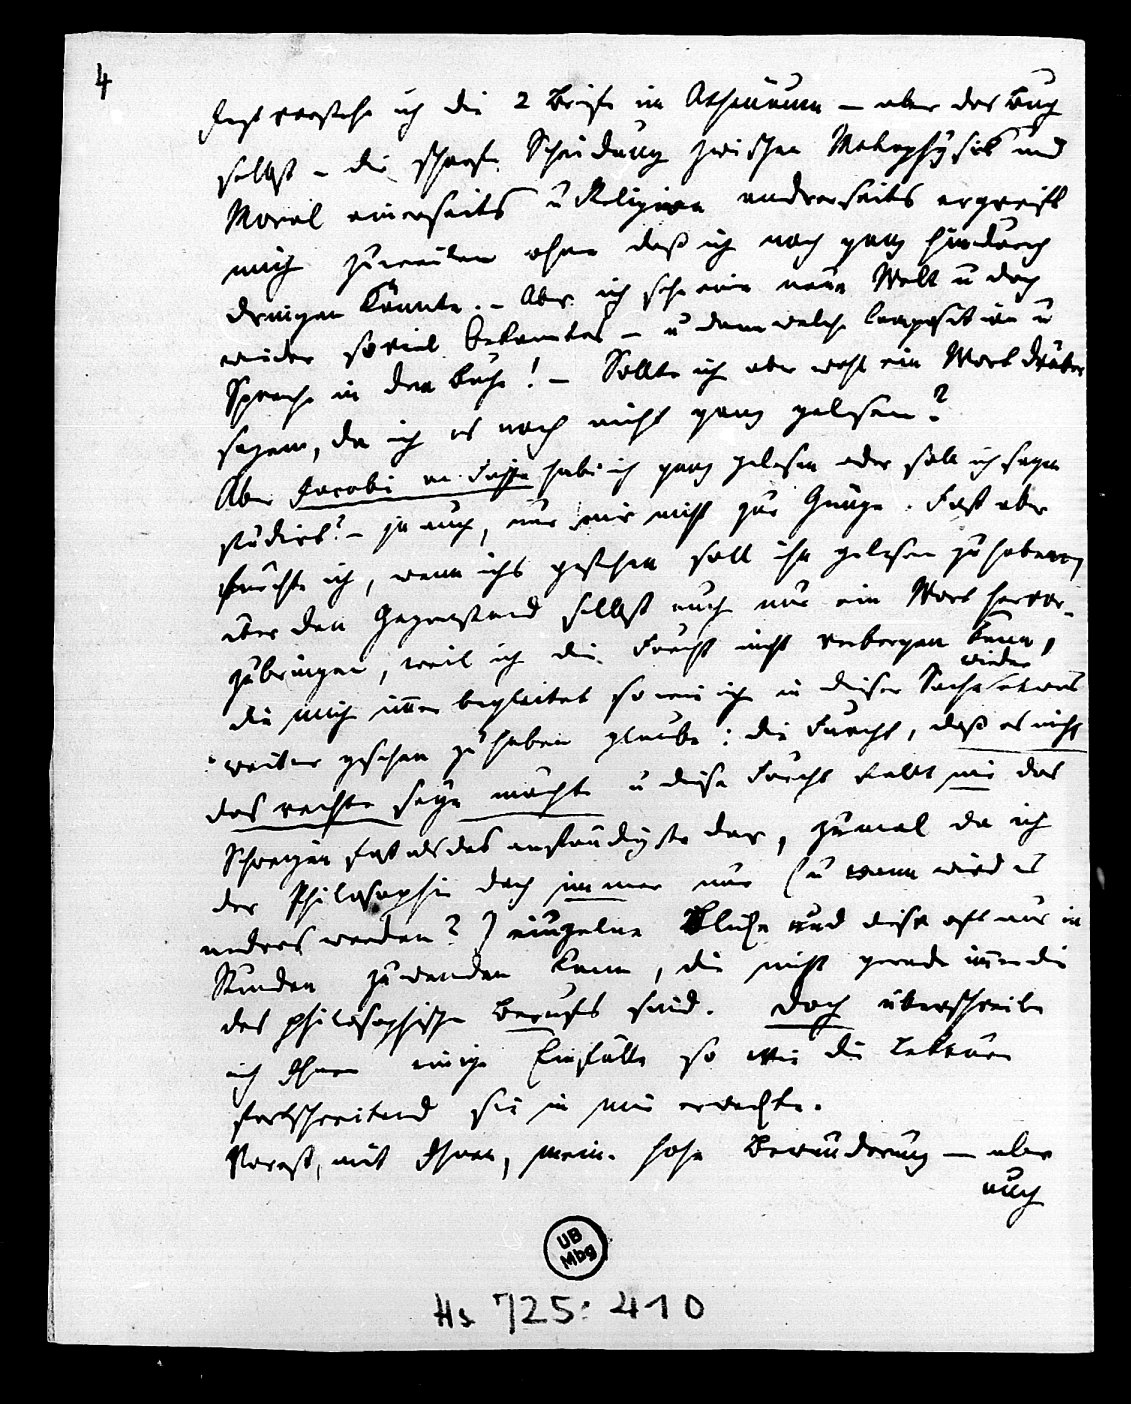 4
verstehe ich die 2 Briefe im Athenäum – aber das Buch
selbst – die scharfe Scheidung zwischen Metaphysik und
Moral einerseits u Religion andrerseits ergreift
mich zuweilen ohne daß ich noch ganz hindurch
dringen könnte. – Aber ich sehe eine neue Welt u doch
wieder soviel bekanntes – u dann welche Composition u
Sprache in dem Buche! – Sollte ich aber wohl ein Wort drüber
sagen, da ich es noch nicht ganz gelesen?
Aber Jacobi an Fichte habe ich ganz gelesen oder soll ich sagen
studirt? – ja auch, nur mir nicht zur Gnüge. Fast aber
fürchte ich, wenn ichs gestehen soll ihn gelesen zu haben,
über den Gegenstand selbst auch nur ein Wort hervor-
zubringen, weil ich die Furcht nicht verbergen kann,
die mich immer begleitet so wie ich in dieser Sache wieder etwas
weiter gesehen zu haben glaube: die Furcht, daß es nicht
das rechte seyn möchte u diese Furcht stellt mir das
Schweigen fast als das anständigste dar, zumal da ich
der Philosophie doch immer nur (u wann wird es
anders werden?) einzelne Blicke und diese oft nur in
Stunden zuwenden kann, die nicht gerade immer die
des philosophischen Berufs sind. Doch überschreibe
ich Ihnen einige Einfälle so wie die Lektüre
fortschreitend sie in mir erweckte.
Vorerst, mit Ihnen, meine hohe Bewunderung – aber
auch
UB
Mbg
Hs 725:410